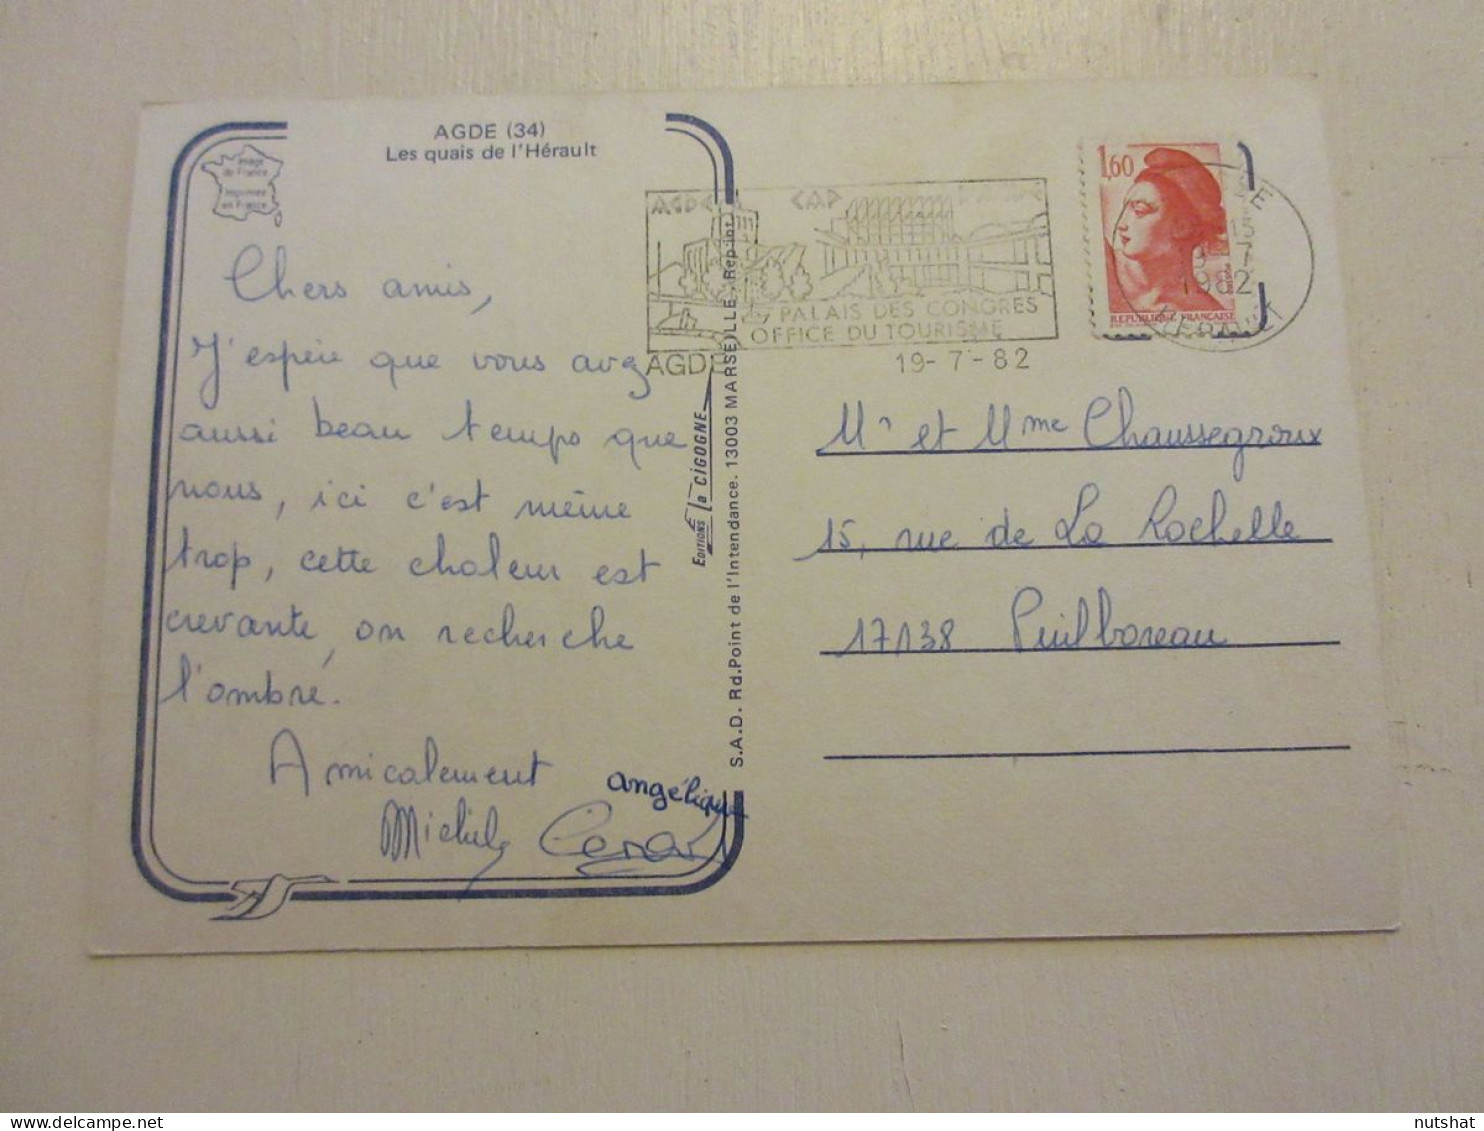 AGDE (34)
Les quais de l'Hérault
Image
de France
Imprimée
en France
Chers amis,
J'espère que vous avez
aussi beau temps que
nous, ici c'est même
trop, cette chaleur est
crevante, on recherche
l'ombre.
Amicalement
angélique
Michel
EDITIONS la CIGOGNE
S.A.D. Rd.Point de l'Intendance. 13003 MARSEILLE - Reprint
AGDE CAP D'AGDE
PALAIS DES CONGRES
OFFICE DU TOURISME
AGDE
19-7-82
1,60
REPUBLIQUE FRANÇAISE
15
19-7
1982
HERAULT
Mr et Mme Chaussegroux
15, rue de La Rochelle
17138 Puilboreau
nutshat